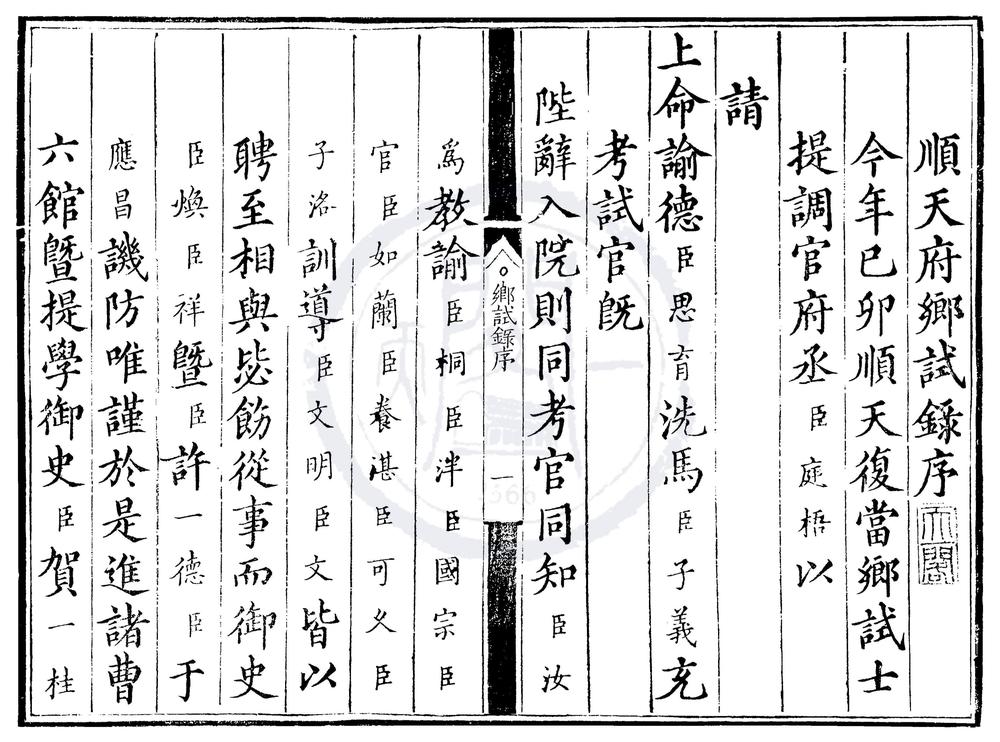 順天府鄉試錄序
今年己卯順天復當鄉試士
提調官府丞臣庭梧以
請
上命諭德臣思育洗馬臣子義充
考試官既
陛辭入院則同考官同知臣汝
鄉試錄序
一
為教諭臣桐臣泮臣國宗臣
官臣如蘭臣養湛臣可久臣
子洛訓導臣文明臣文皆以
聘至相與毖飭從事而御史
臣煥臣祥暨臣許一德臣于
應昌譏防唯謹於是進諸曹
六館暨提學御史臣賀一桂